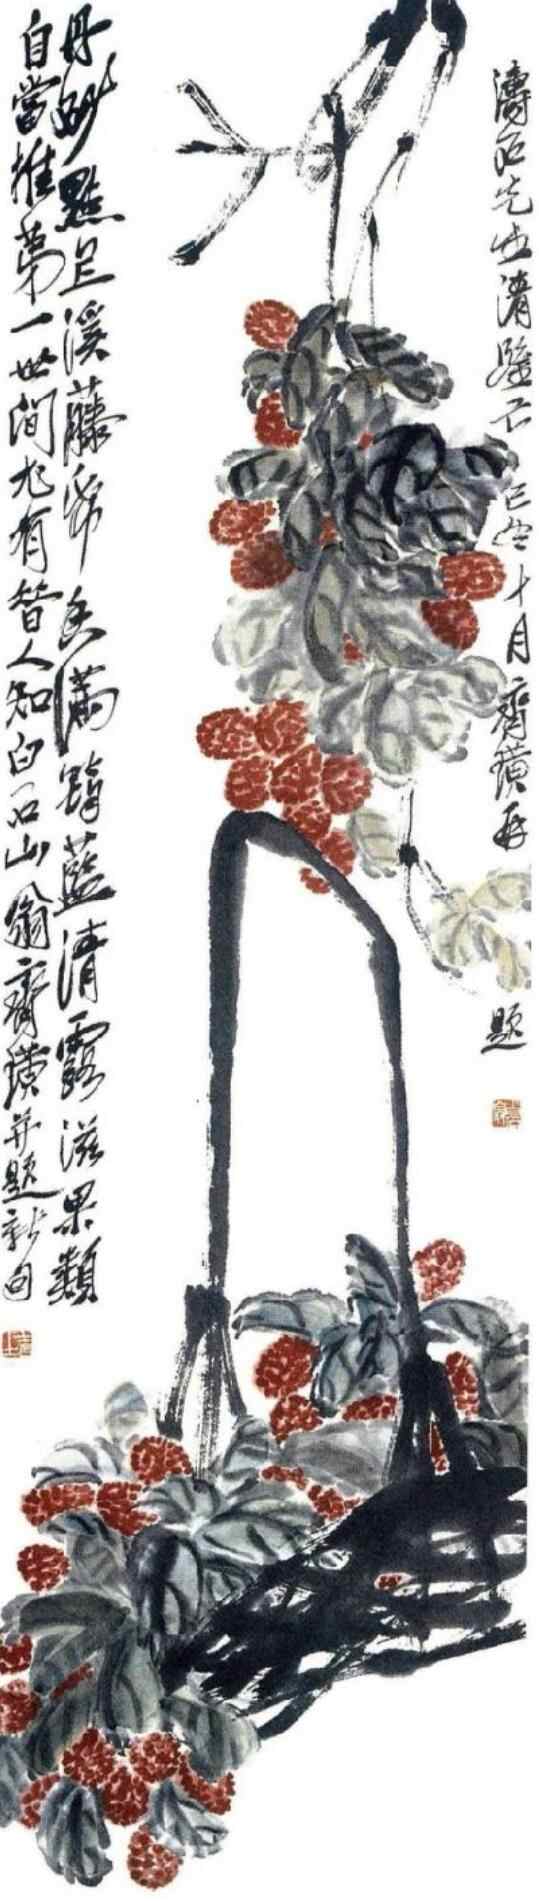 濤石先生清鑒 十月齊璜再題
丹砂點上溪藤紙香滿筠籃清露滋果類
自當推第一世間尤有昔人知白石山翁齊璜并題新句